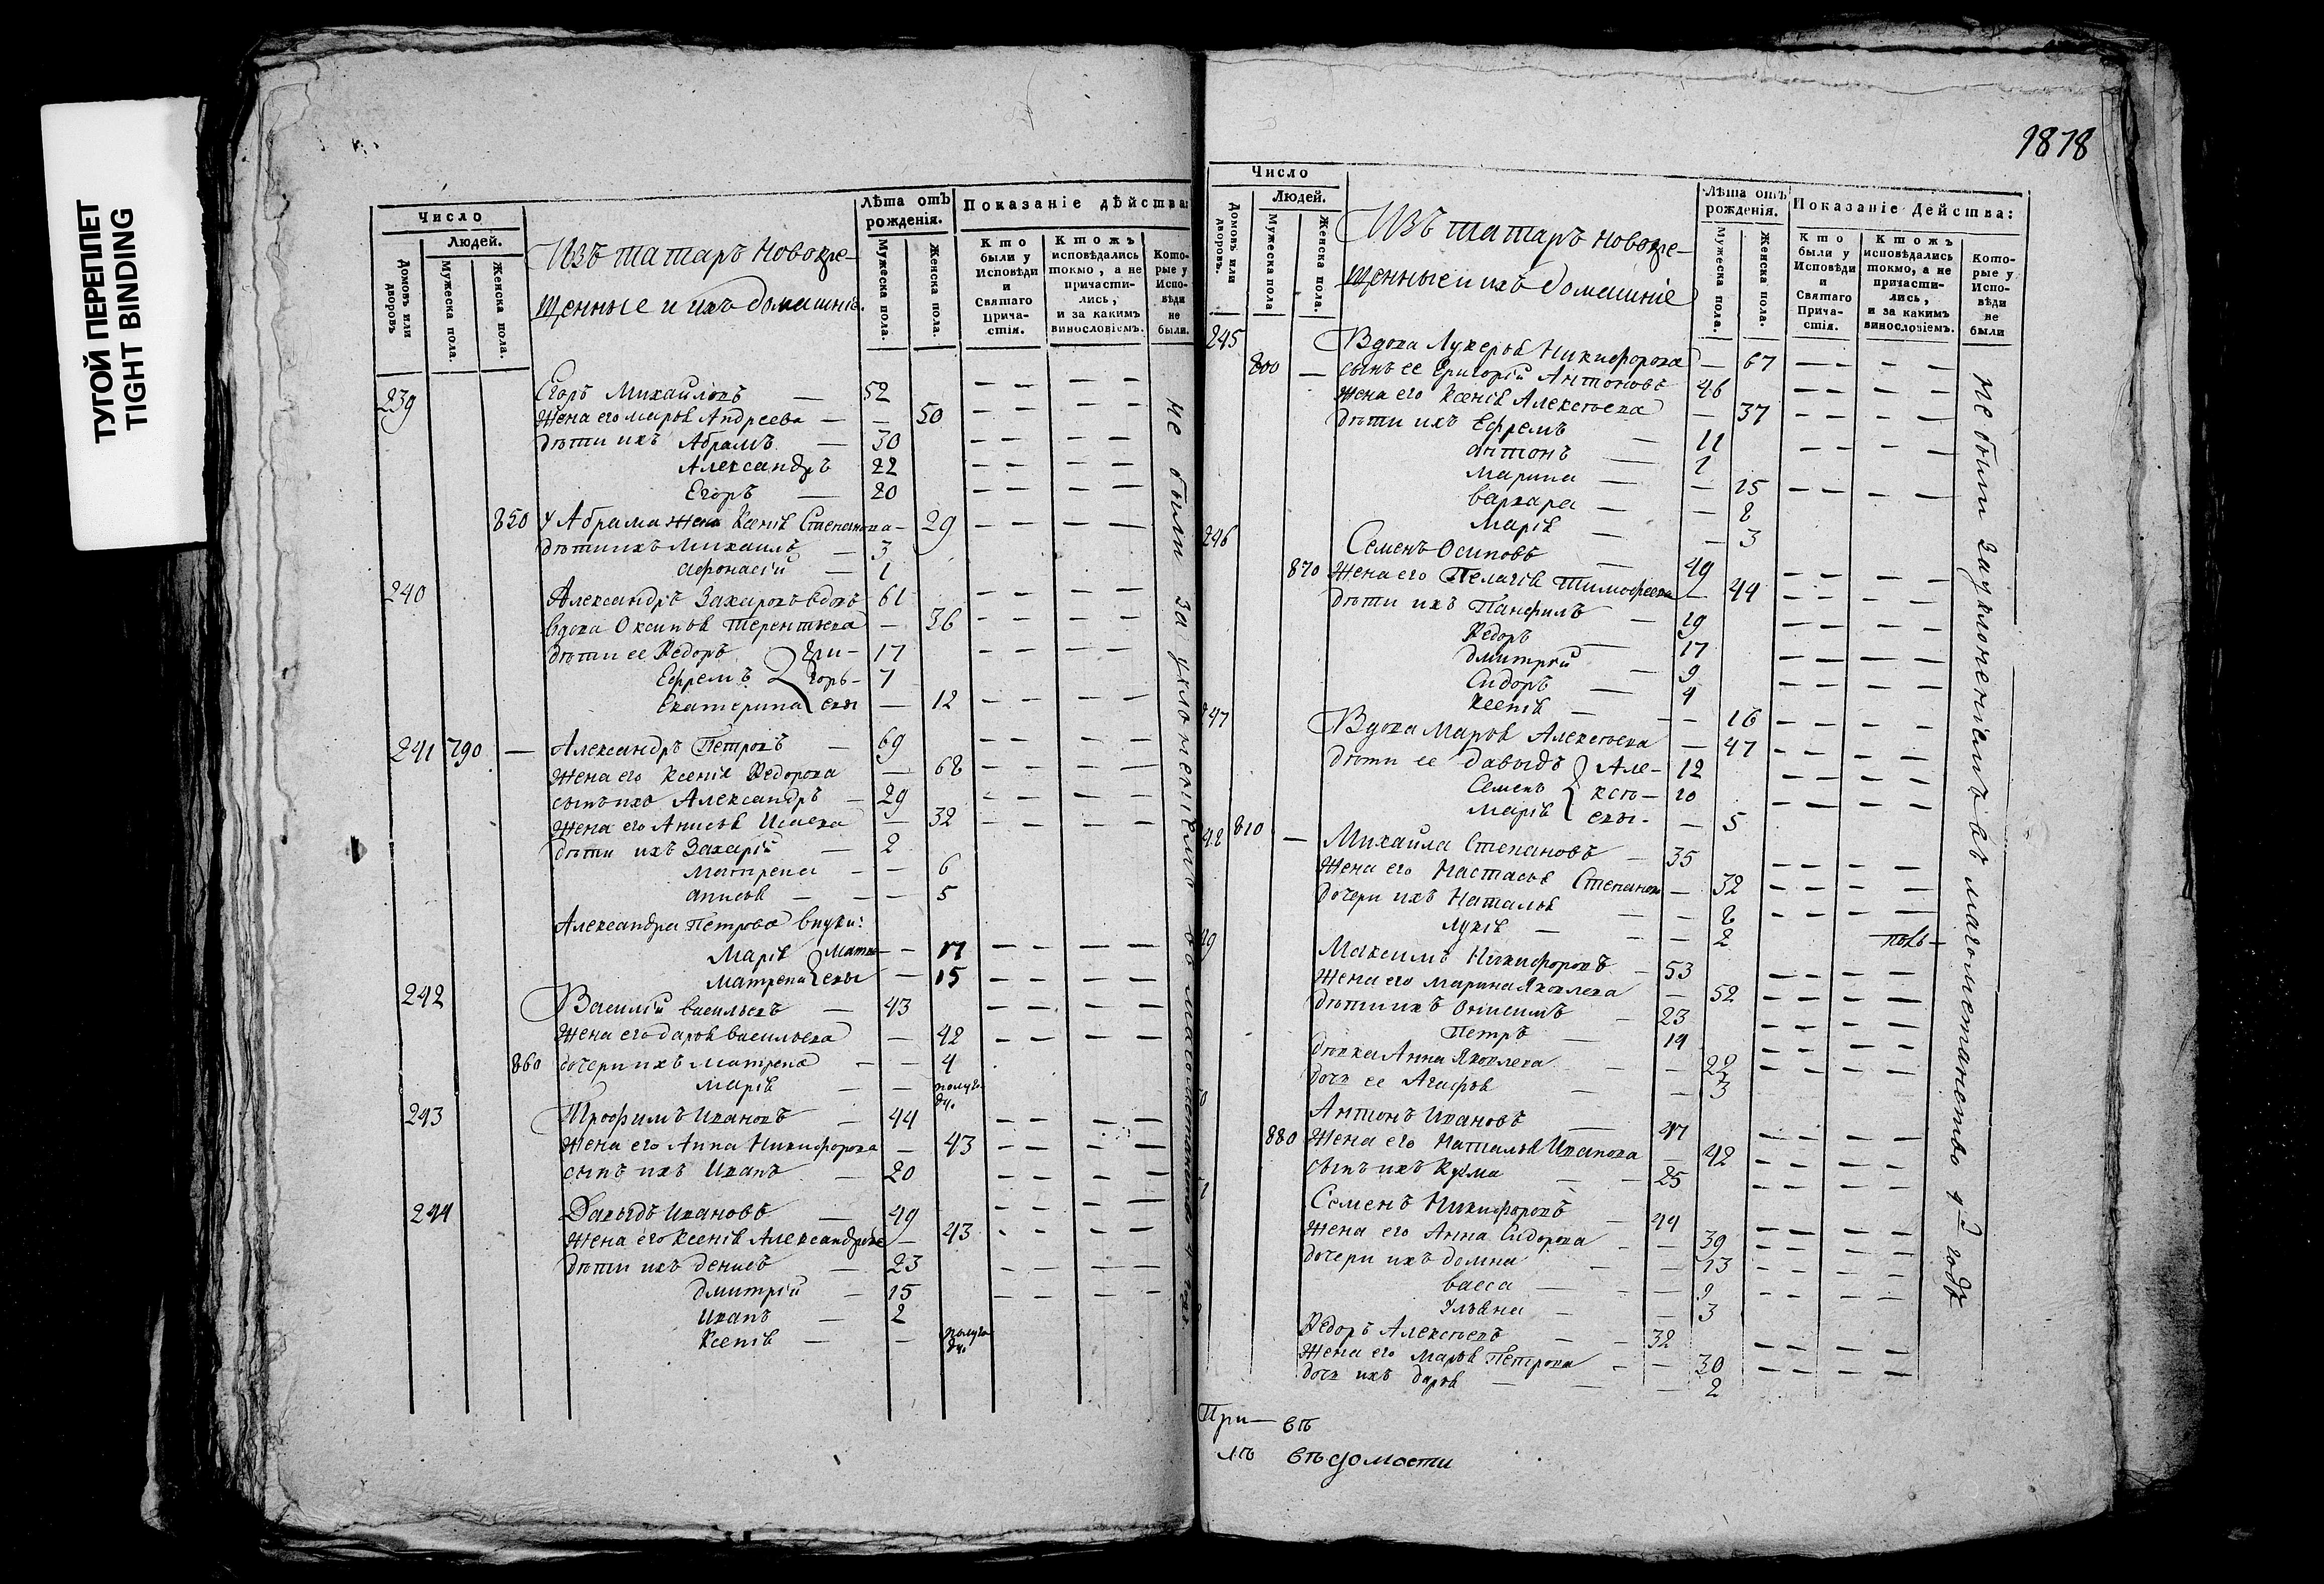 ТУГОЙ ПЕРЕПЛЕТ
TIGHT BINDING
Число
Людей.
Домовъ или дворовъ
Мужеска пола.
Женска пола.
Изъ татаръ новокре-
щенные и ихъ домашніе.
Лѣта отъ рожденія.
Мужеска пола.
Женска пола.
Показаніе дѣйства:
Кто были у Исповѣди и Святаго Прича-стія.
Ктожъ исповѣдались токмо, а не причасти-лись, и за какимъ винословіемъ.
Кото-рые у Испо-вѣди не были.
239 Егоръ Михайловъ — 52
Жена его Марѳа Андреева — — 50
Дѣти ихъ Абрамъ — 30
Александръ 22
Егоръ — 20
850 У Абрама жена Ксенія Степанова — 29
Дѣти ихъ Михаилъ — 3
Афонасій — 1
240 Александръ Захаровъ вдовъ — 61
Вдова Оксинья Терентьева — 36
Дѣти ее Ѳедоръ Гри- 17
Ефремъ горь- 7
Екатерина евы — 12
241 790 — Александръ Петровъ — 69
Жена его Ксенія Ѳедорова — 68
Сынъ ихъ Александръ — 29
Жена его Анисья Исаева — 32
Дѣти ихъ Захарій — 2
Матрена — — 6
Анисья — — 5
Александра Петрова внуки:
Марія Матв- — 17
Матрена евы — 15
242 Василій Васильевъ — 43
Жена его Дарья Васильева — 42
860 Дочери ихъ Матрена — — 4
Марія — — полуго-
ду.
243 Трофимъ Ивановъ — 44
Жена его Анна Никифорова — 43
Сынъ ихъ Иванъ — 20
244 Давыдъ Ивановъ — 49
Жена его Ксенія Александрова — 43
Дѣти ихъ Денисъ — 23
Дмитрій — 15
Иванъ — 2
Ксенія — — полуго-
ду.
не были за уклоненіемъ въ магометанство
1818
Число
Людей.
Домовъ или дворовъ.
Мужеска пола
Женска пола.
Изъ татаръ новокре-
щенные и ихъ домашніе
Лѣта отъ рожденія.
Мужеска пола.
Женска пола.
Показаніе дейсшва:
Кто были у Исповѣди и Святаго Прича-стія.
Ктожъ исповѣдались токмо, а не причасти-лись, и за какимъ винословіемъ.
Кото-рые у Испо-вѣди не были
245 Вдова Лукерья Никифорова — 67
800 — Сынъ ее Григорій Антоновъ 46
Жена его Ксенія Алексѣева — 37
Дѣти ихъ Ефремъ — 11
Антонъ — 1
Марина — — 15
Варвара — — 8
Марія — — 3
246 Семенъ Осиповъ — 49
870 Жена его Пелагія Тимофеева — 44
Дѣти ихъ Панфилъ — 19
Ѳедоръ — 17
Дмитрій — 9
Сидоръ — 4
Ксенія — — 16
247 Вдова Марѳа Алексѣева — 47
Дѣти ее Давыдъ Але- 12
Семенъ ксѣ- 10
Марія евы. — 5
810 — Михайла Степановъ — 35
Жена его Настасья Степанова — 32
Дочери ихъ Наталья — — 8
Лукія — — 2
Максимъ Никифоровъ — 53
Жена его Марина Яковлева — 52
Дѣти ихъ Онисимъ — 23
Петръ — 14
Дѣвка Анна Яковлева — — 22
Дочь ее Агафья — — 3
Антонъ Ивановъ — 47
880 Жена его Наталья Иванова — 42
Сынъ ихъ Кузма — — 25
Семенъ Никифоровъ — 44
Жена его Анна Сидорова — — 39
Дочери ихъ Домна — — 13
Васса — — 9
Ульяна — — 3
Ѳедоръ Алексѣевъ — — 32
Жена его Марья Петрова — — 30
Дочь ихъ Дарья — — — 2
не были за уклоненіемъ въ магометанство 4й годъ
При — въ
вѣдомости